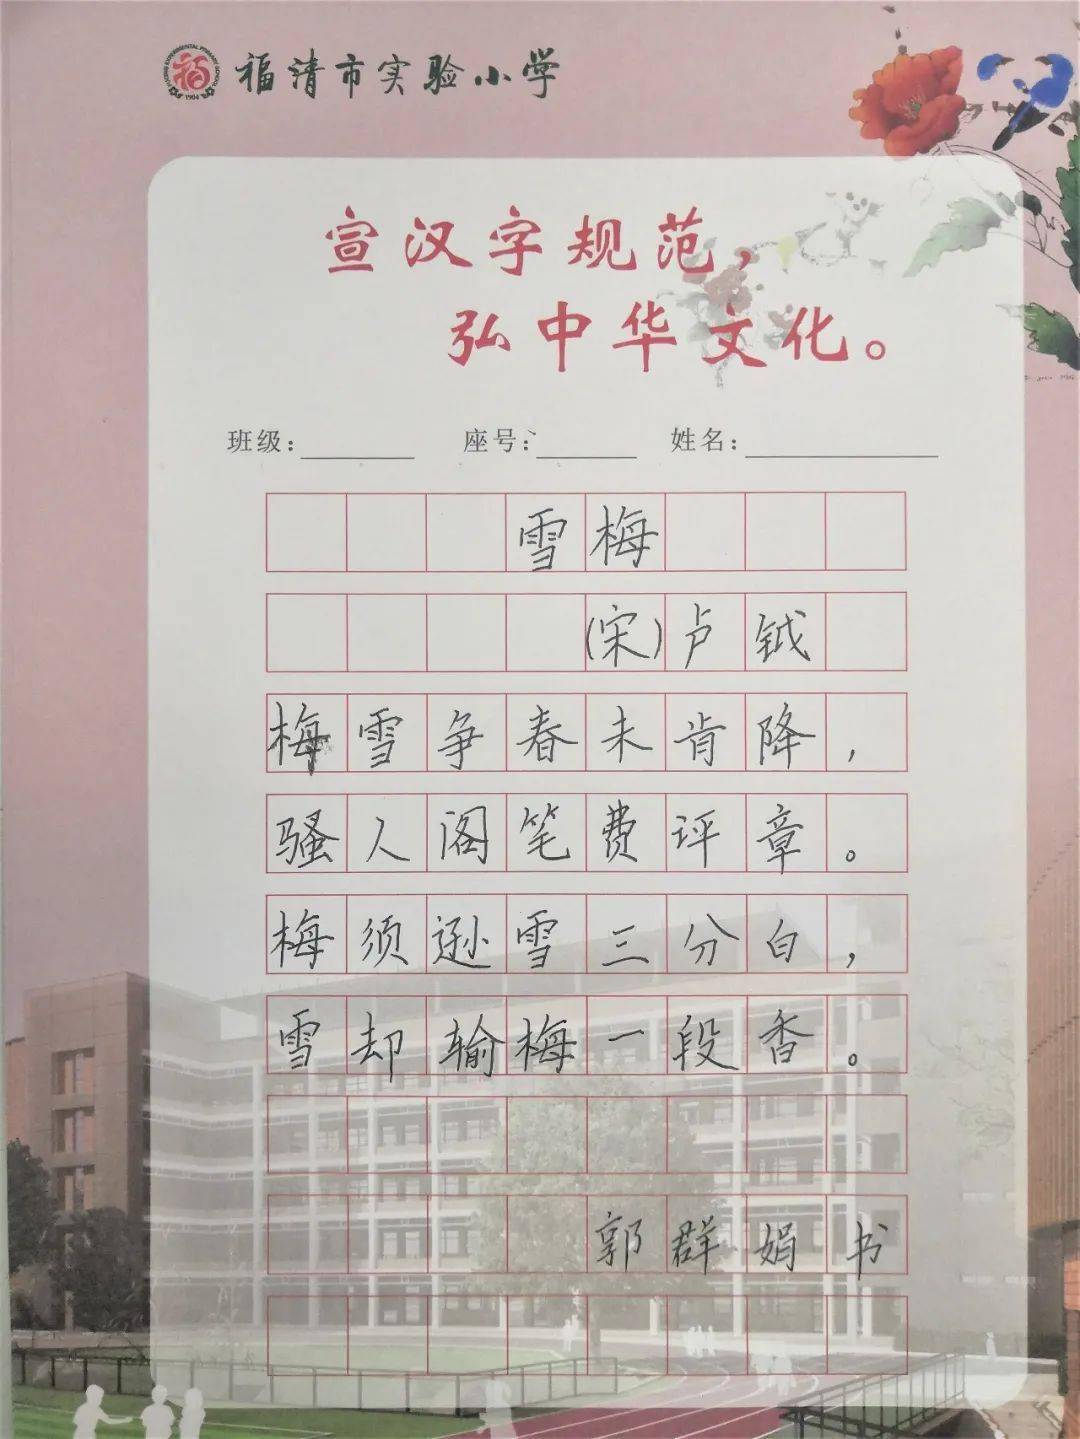 福清市实验小学
宣汉字规范,
弘中华文化。
班级: 座号: 姓名:
雪梅
(宋)卢钺
梅雪争春未肯降,
骚人阁笔费评章。
梅须逊雪三分白,
雪却输梅一段香。
郭群娟书